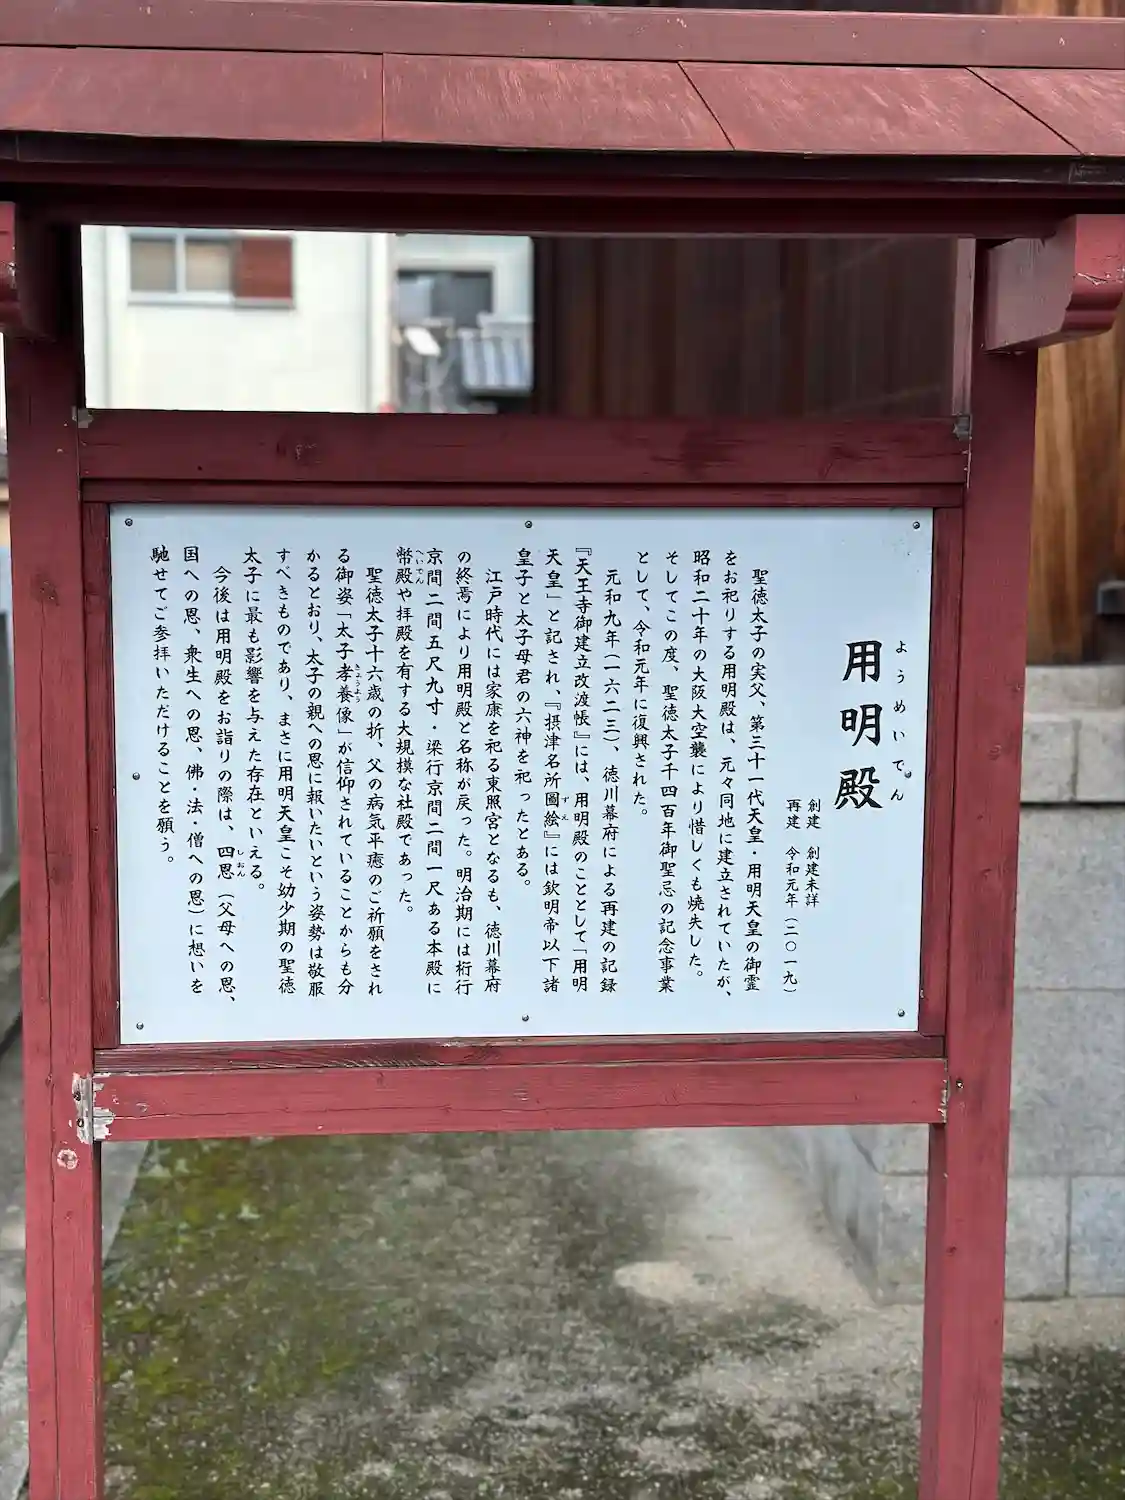 ようめいでん
用明殿
創建　創建未詳
再建　令和元年（二〇一九）
聖徳太子の実父、第三十一代天皇・用明天皇の御霊
をお祀りする用明殿は、元々同地に建立されていたが、
昭和二十年の大阪大空襲により惜しくも焼失した。
そしてこの度、聖徳太子千四百年御聖忌の記念事業
として、令和元年に復興された。
元和九年（一六二三）、徳川幕府による再建の記録
『天王寺御建立改渡帳』には、用明殿のこととして「用明
天皇」と記され、『摂津名所圖絵』には欽明帝以下諸
ずえ
皇子と太子母君の六神を祀ったとある。
江戸時代には家康を祀る東照宮となるも、徳川幕府
の終焉により用明殿と名称が戻った。明治期には桁行
京間二間五尺九寸・梁行京間二間一尺ある本殿に
幣殿や拝殿を有する大規模な社殿であった。
へいでん
聖徳太子十六歳の折、父の病気平癒のご祈願をされ
る御姿「太子孝養像」が信仰されていることからも分
きょうよう
かるとおり、太子の親への恩に報いたいという姿勢は敬服
すべきものであり、まさに用明天皇こそ幼少期の聖徳
太子に最も影響を与えた存在といえる。
今後は用明殿をお詣りの際は、四恩（父母への恩、
しおん
国への恩、衆生への恩、佛・法・僧への恩）に想いを
馳せてご参拝いただけることを願う。